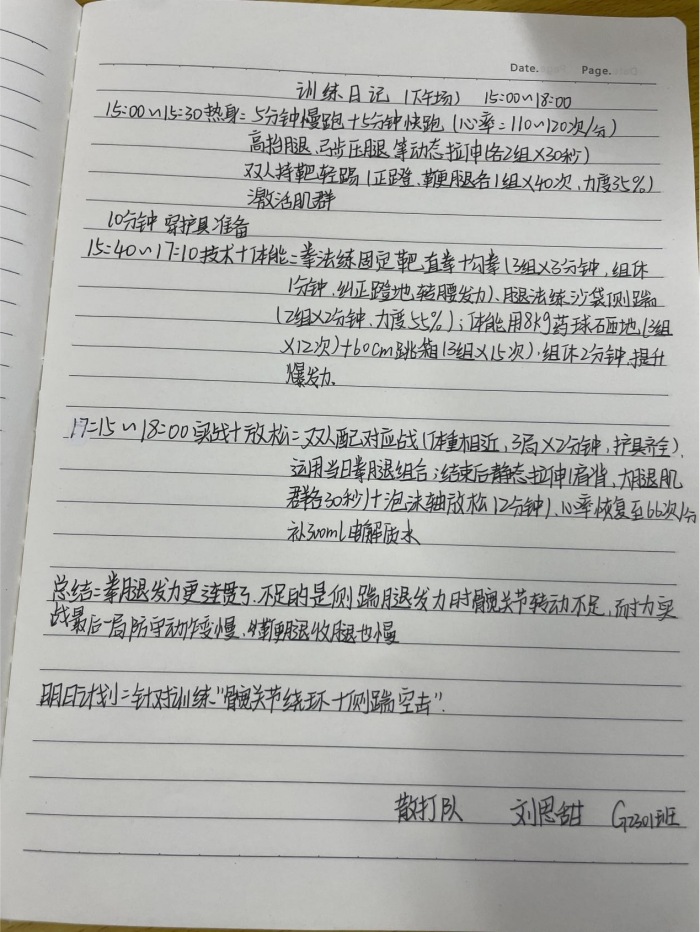 Date. Page.
训练日记 (下午场) 15:00~18:00
15:00~15:30热身：5分钟慢跑+5分钟快跑(心率：110~120次/分)
高抬腿、弓步压腿等动态拉伸(各2组×30秒)
双人持靶轻踢(正蹬、鞭腿各1组×40次,力度35%)
激活肌群
10分钟穿护具准备
15:40~17:10技术+体能：拳法练固定靶,直拳+勾拳(3组×3分钟,组休
1分钟,纠正蹬地、转腰发力)、腿法练沙袋侧踹
(2组×2分钟、力度55%)；体能用8kg药球砸地(3组
×12次)+60cm跳箱(3组×15次),组休2分钟,提升
爆发力.
17:15~18:00实战+放松：双人配对应战(体重相近,3局×2分钟,护具齐全),
运用当日拳腿组合；结束后静态拉伸(肩背,大腿肌
群各30秒)+泡沫轴放松(2分钟),心率恢复至66次/分
补300mL电解质水
总结：拳腿发力更连贯了.不足的是侧踹腿发力时髋关节转动不足,耐力实
战最后一局防守动作变慢、鞭腿收腿也慢
明日计划：针对训练"髋关节绕环+侧踹空击".
散打队 刘思甜 G2301班